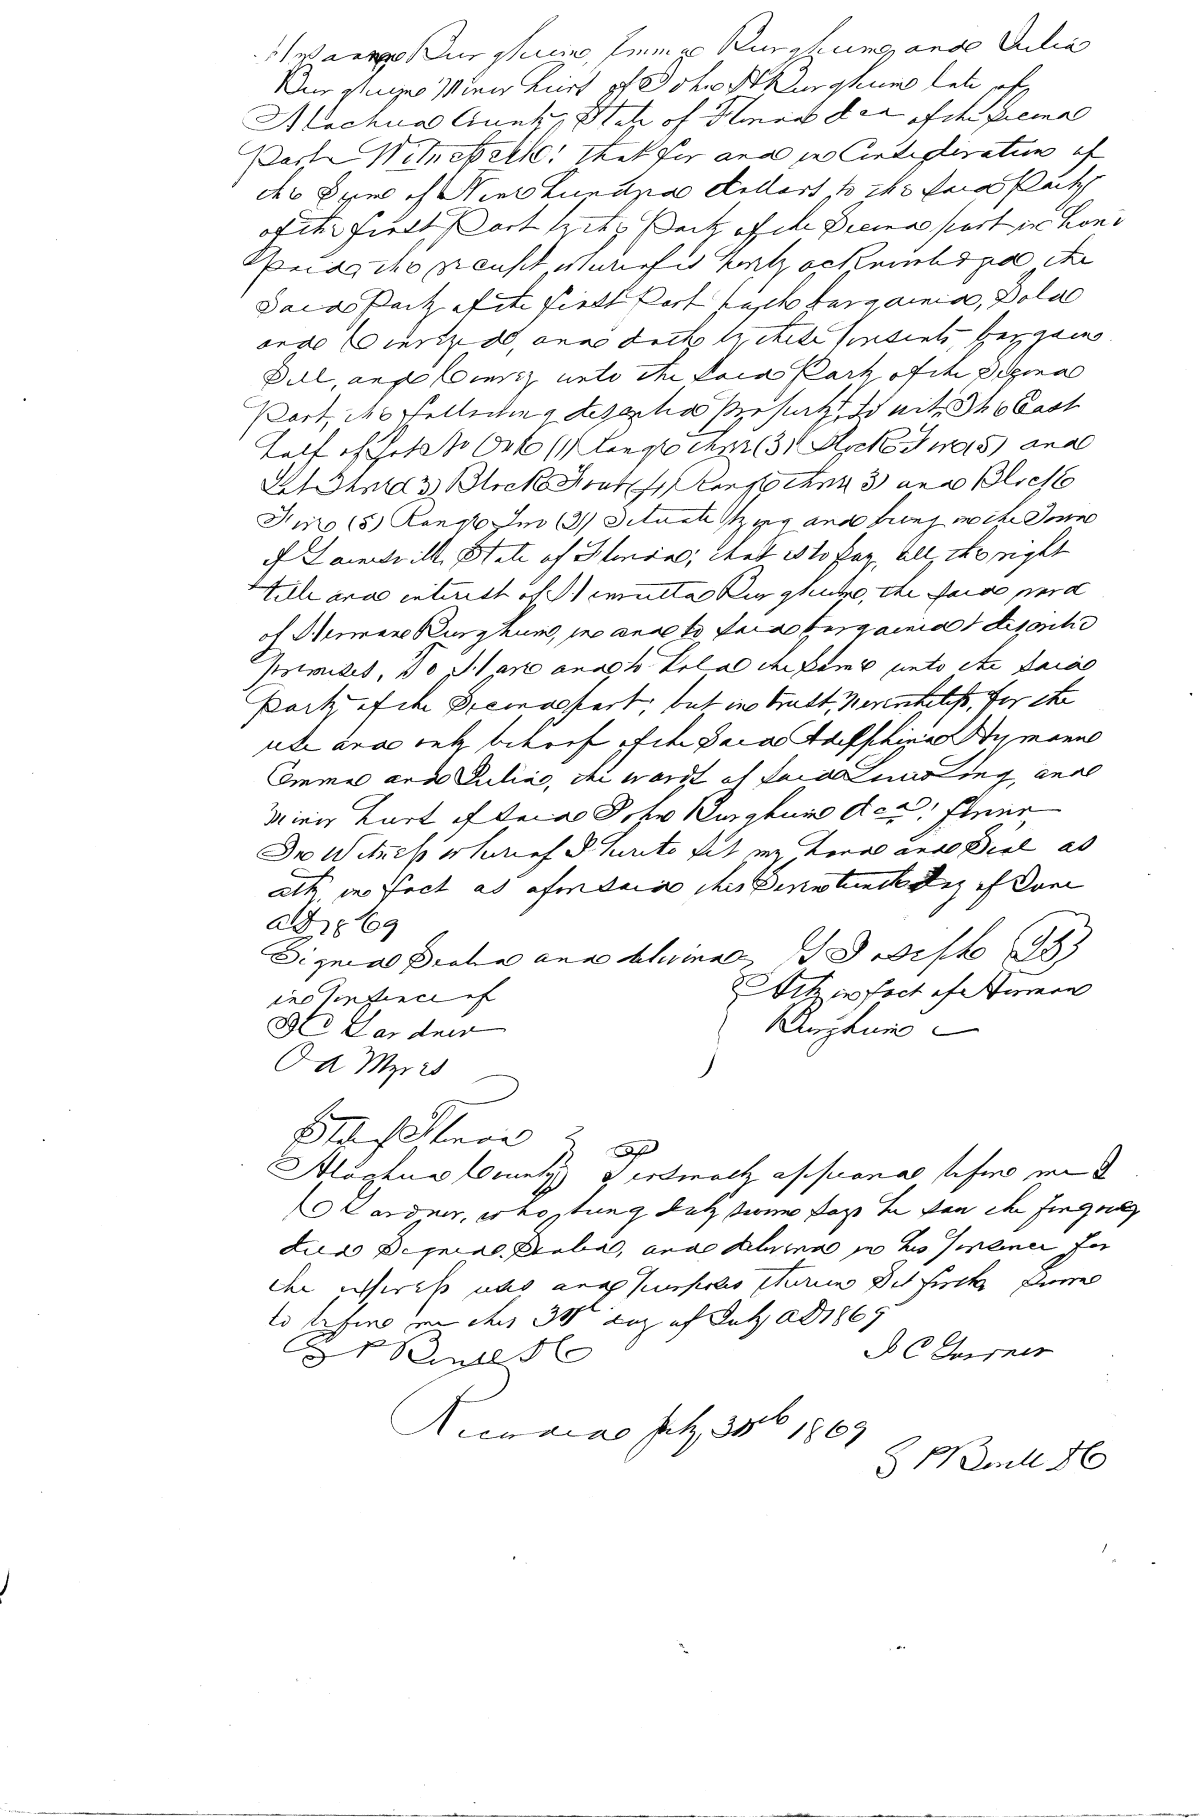 Burgheim, Emma Burgheim, and Julia
Burgheim Minor heirs of John H Burgheim late of
Alachua County, State of Florida dec of the Second
Part Witnesseth: that for and in Consideration of
the Sum of Nine hundred dollars to the Said Party
of the first Part by the Party of the Second part in hand
Paid, the receipt whereof is hereby acknowledged the
Said Party of the first Part hath bargained, Sold
and Conveyed, and doth by these presents, bargain
Sell, and Convey unto the Said Party of the Second
Part, the following described property, to wit, The East
half of Lot No One (1) Range three (3) Block Five (5) and
Lot Third 3) Block Four (4) Range three 3) and Block
Five (5) Range Two (2) Situate lying and being in the Town
of Gainesville State of Florida; that is to Say, all the right
title and interest of Burgheim, the Said
of Herman Burgheim, in and to Said bargained & described
premises, To Have and to hold the Same unto the Said
Party of the Second part; but in trust, nevertheless, for the
use and only behoof of the Said Adelphina Hymann
Emma and Julia, the wards of Said Long, and
Minor heirs of Said John Burgheim dec<sup>d</sup>
In Witness whereof I hereto Set my hand and Seal as
atty in fact as aforesaid this Seventeenth day of June
AD 1869
Signed Sealed and delivered J Joseph
in presence of Atty in fact of Herman
J C Gardner Burgheim
O A Myres
State of Florida
Alachua County Personally appeared before me J
C Gardner, who being duly Sworn Says he Saw the foregoing
deed Signed, Sealed, and delivered in his presence for
the express uses and purposes therein Set forth Sworn
to before me this 30th day of July AD 1869
J C Gardner
Recorded July 30th 1869